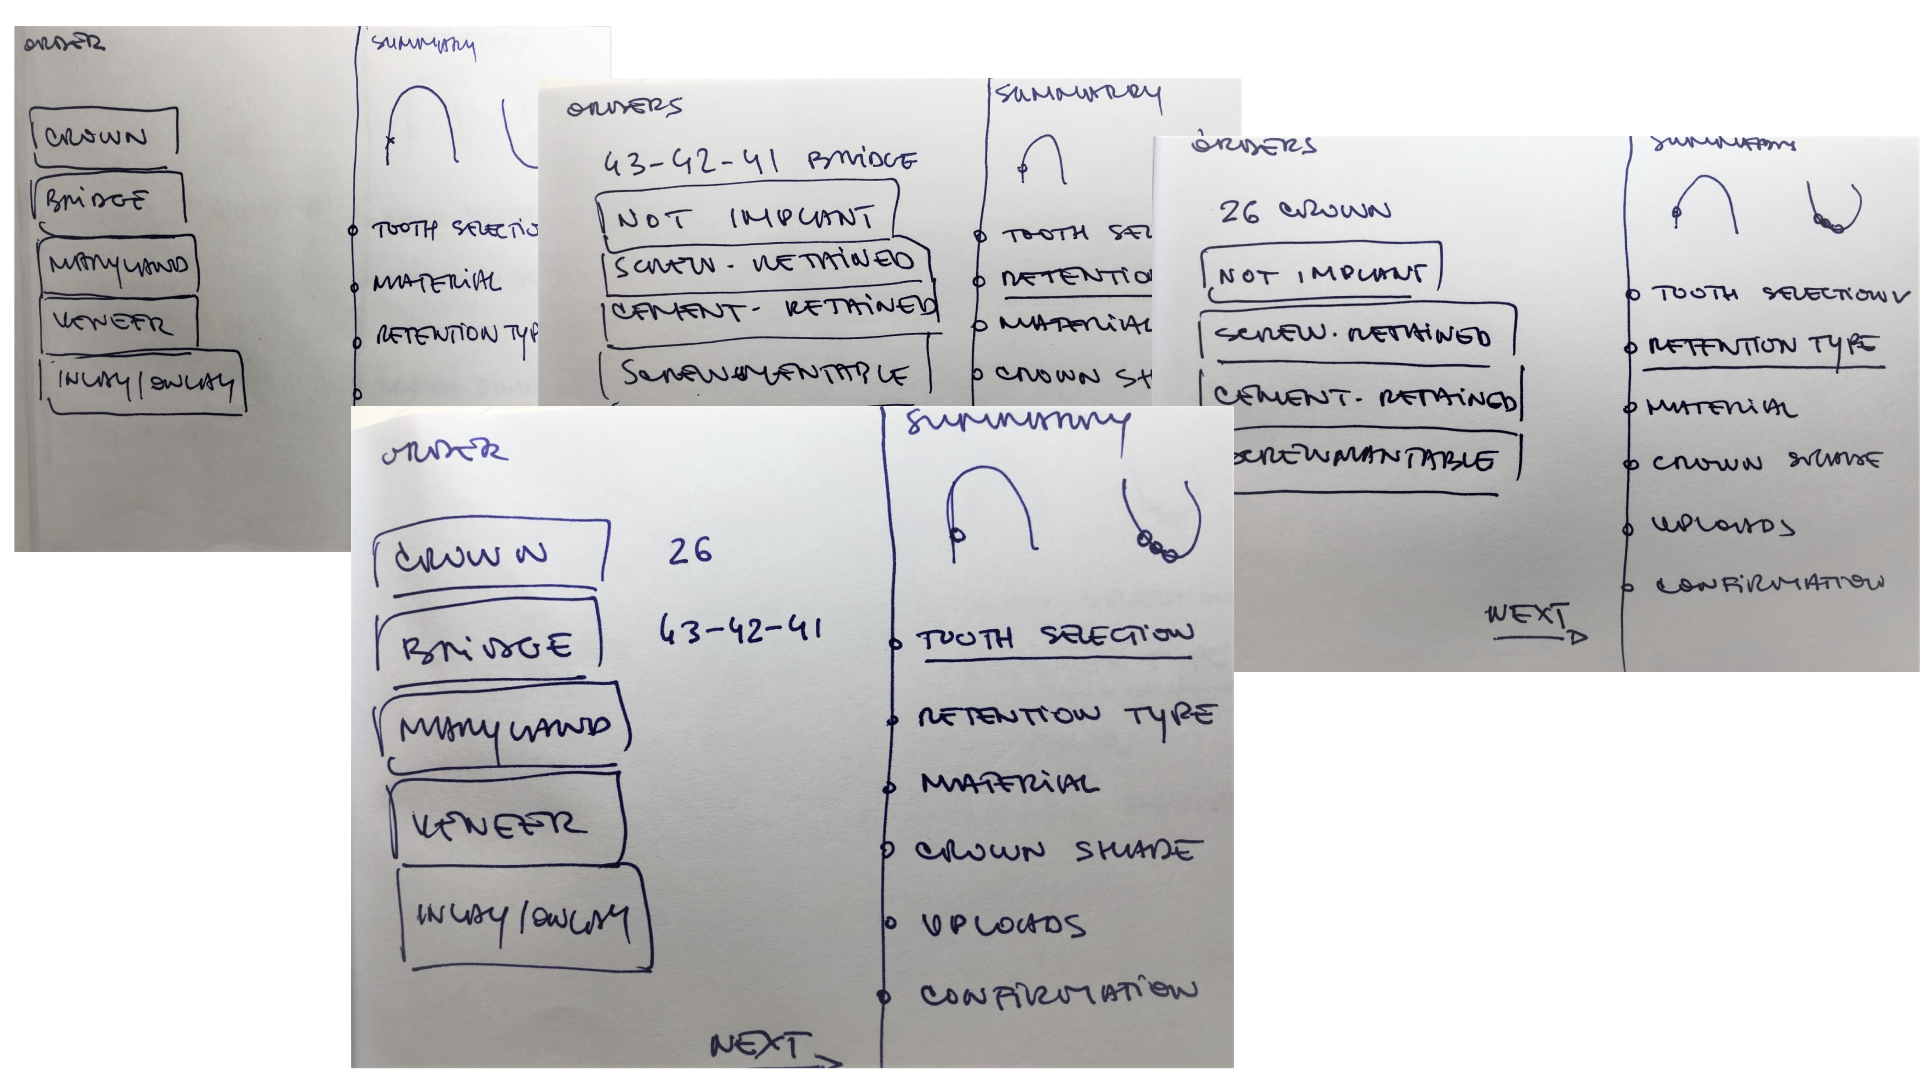 ORDER
CROWN
BRIDGE
MARYLAND
VENEER
INLAY/ONLAY
SUMMARY
TOOTH SELECTIO
MATERIAL
RETENTION TYP
ORDERS
43-42-41 BRIDGE
NOT IMPLANT
SCREW-RETAINED
CEMENT-RETAINED
SUMMARRY
TOOTH SEL
RETENTIO
MATERIAL
CROWN SH
ORDERS
26 CROWN
NOT IMPLANT
SCREW-RETAINED
CEMENT-RETAINED
SUMMARY
TOOTH SELECTION
RETENTION TYPE
MATERIAL
CROWN SHADE
UPLOADS
CONFIRMATION
NEXT
ORDER
CROWN 26
BRIDGE 43-42-41
MARYLAND
VENEER
INLAY/ONLAY
NEXT
SUMMARRY
TOOTH SELECTION
RETENTION TYPE
MATERIAL
CROWN SHADE
UPLOADS
CONFIRMATION